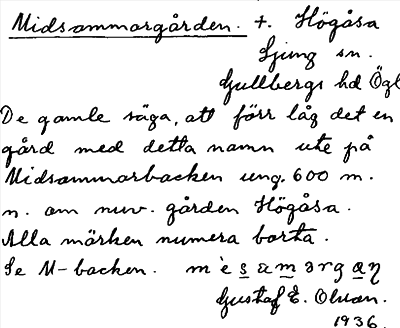 Midsommorgården. +. Högåsa
Ljung sn.
Gullbergs hd Ögl
De gamle säga, att förr låg det en
gård med detta namn ute på
Midsommarbacken ung. 600 m.
n. om nuv. gården Högåsa.
Alla märken numera borta.
Se M-backen. mèsamərgaη
Gustaf E. Olsson.
1936.